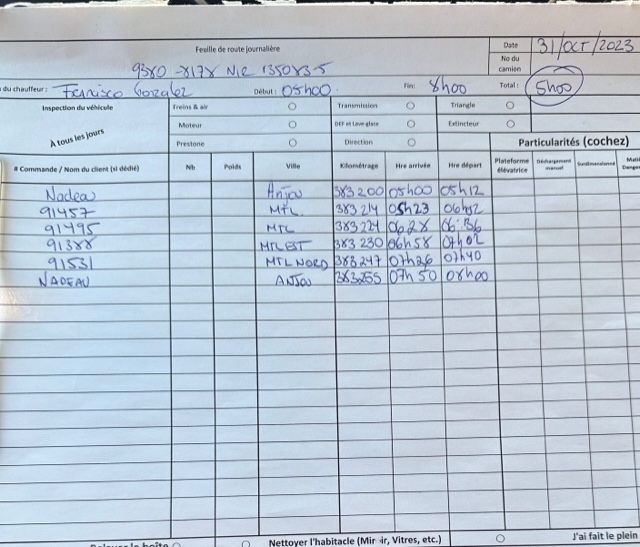 Feuille de route journalière Date 31/OCT/2023
No du camion
9380-8178
du chauffeur: Début: 05h00 Fin: 8h00 Total: 5h00
Inspection du véhicule Freins & air Transmission Triangle
A tous les jours Moteur Extincteur
Prestone Direction Particularités (cochez)
# Commande / Nom du client (si dédié) Nb Poids Ville Kilométrage Hre arrivée Hre départ Plateforme élévatrice Déchargement manuel Surdimensionné
Nadeau Anjou 383200 05h00 05h12
91457 MTL 383214 05h23
91495 MTL 383221 0628 06:36
91388 MTL EST 383230 06h58 07h02
91531 MTL NORD 383247 07h26 07h40
NADEAU ANJOU 383255 07h50 08h00
Nettoyer l'habitacle Vitres, etc.) J'ai fait le plein